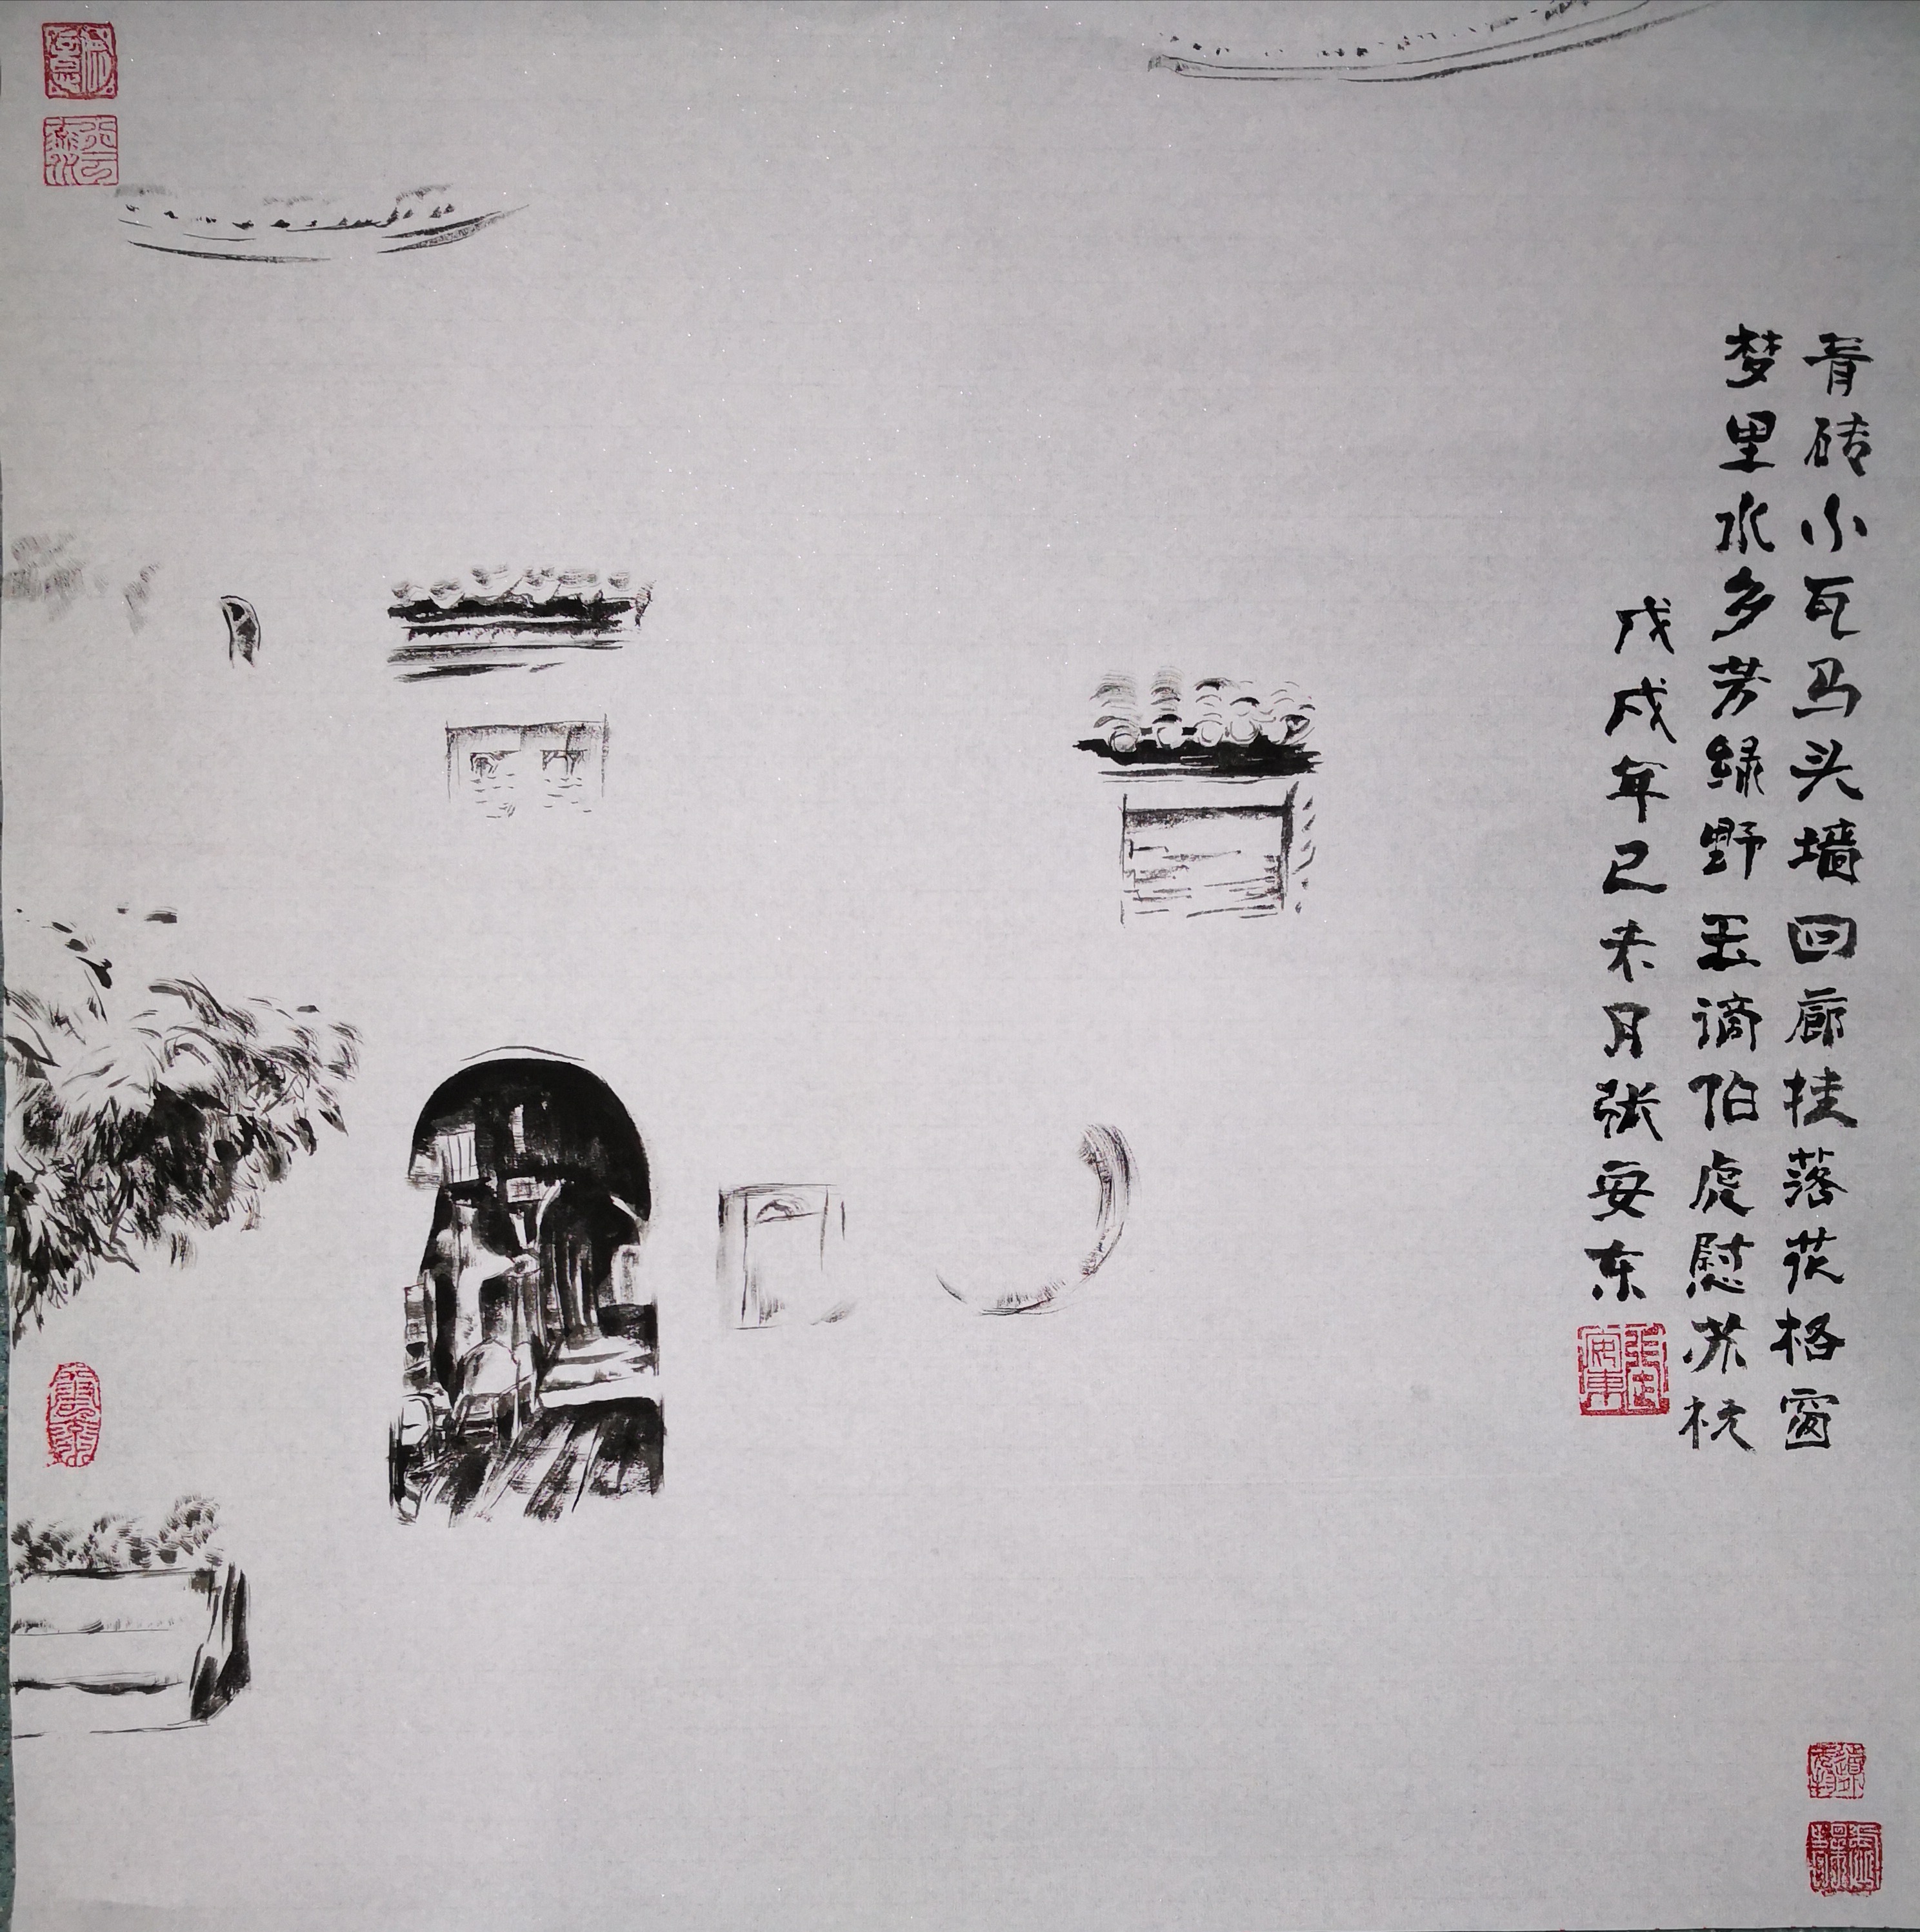 青砖小瓦马头墙回廊挂落花格窗
梦里水乡芳绿野玉谪伯虎慰苏杭
戊戌年己未月张安东
张氏安东